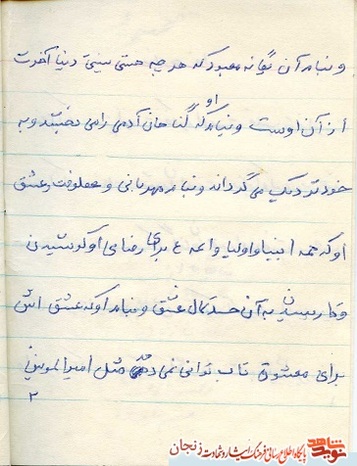 و بنام آن یگانه معبود که هر چه هستی یعنی دنیا آخرت
از آن اوست و بنام او که گناهان آدمی را می بخشد و به
خود نزدیک می گرداند و بنام مهربانی و عطوفت و عشق
او که همه انبیا و اولیا و ائمه ع برای رضای او کوشیدن
و تا رسیدن به آن حد کمال عشق و بنام او که عشق اش
برای معشوق تاب توانی نمی دهد مثل امیرالمومنین
۲
نوید شاهد
پایگاه اطلاع رسانی فرهنگ ایثار و شهادت زنجان